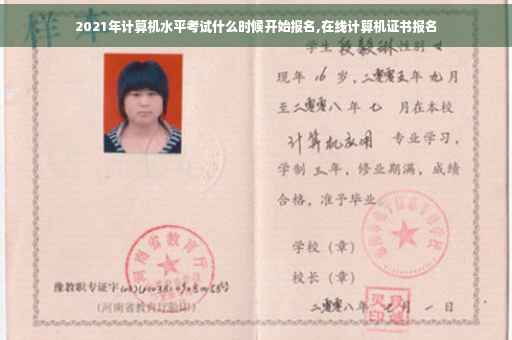 2021年计算机水平考试什么时候开始报名,在线计算机证书报名
样本
学生段毅琳性别女
现年16岁,二零零五年九月
至二零零八年七 月在本校
计算机应用 专业学习,
学制三年,修业期满,成绩
合格,准予毕业。
学校(章)
校长(章)
二零零八年七月一日
河南省教育厅
豫教职专证字
(河南省教育厅验印)